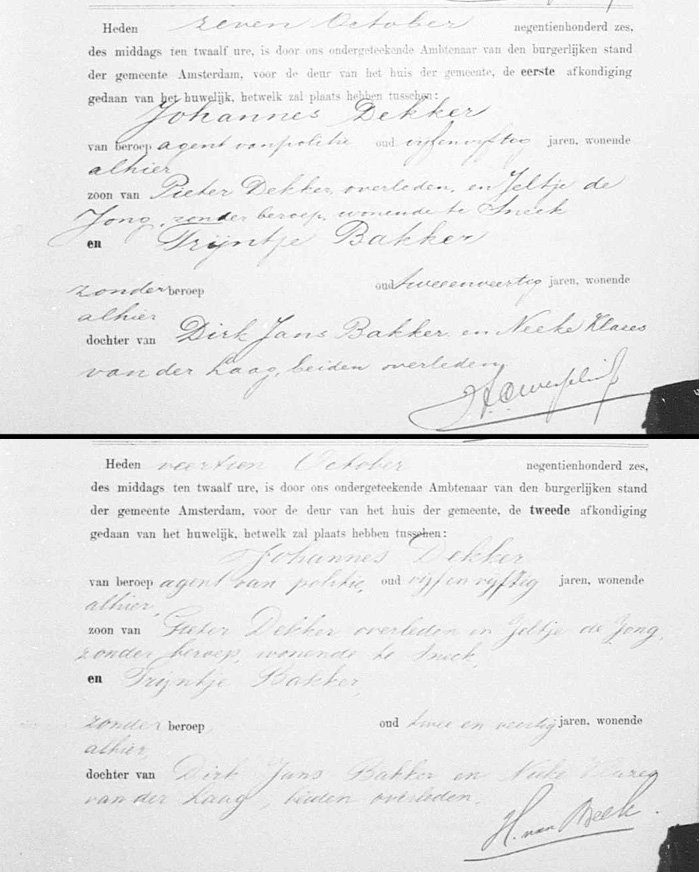 Heden zeven October negentienhonderd zes,
des middags ten twaalf ure, is door ons ondergeteekende Ambtenaar van den burgerlijken stand
der gemeente Amsterdam, voor de deur van het huis der gemeente, de eerste afkondiging
gedaan van het huwelijk, hetwelk zal plaats hebben tusschen:
Johannes Dekker
van beroep agent van politie oud vijfenvijftig jaren, wonende
alhier
zoon van Pieter Dekker, overleden, en Jeltje de
Jong, zonder beroep, wonende te Sneek
en Trijntje Bakker
zonder beroep oud tweeenveertig jaren, wonende
alhier
dochter van Dirk Jans Bakker en Neeke Klaees
van der Laag, beiden overleden
Heden veertien October negentienhonderd zes,
des middags ten twaalf ure, is door ons ondergeteekende Ambtenaar van den burgerlijken stand
der gemeente Amsterdam, voor de deur van het huis der gemeente, de tweede afkondiging
gedaan van het huwelijk, hetwelk zal plaats hebben tusschen:
Johannes Dekker
van beroep agent van politie, oud vijf en vijftig jaren, wonende
alhier,
zoon van Pieter Dekker overleden en Jeltje de Jong,
zonder beroep, wonende te Sneek,
en Trijntje Bakker,
zonder beroep oud twee en veertig jaren, wonende
alhier,
dochter van Dirk Jans Bakker en
van der Laag, beiden overleden.
H. van Beek.